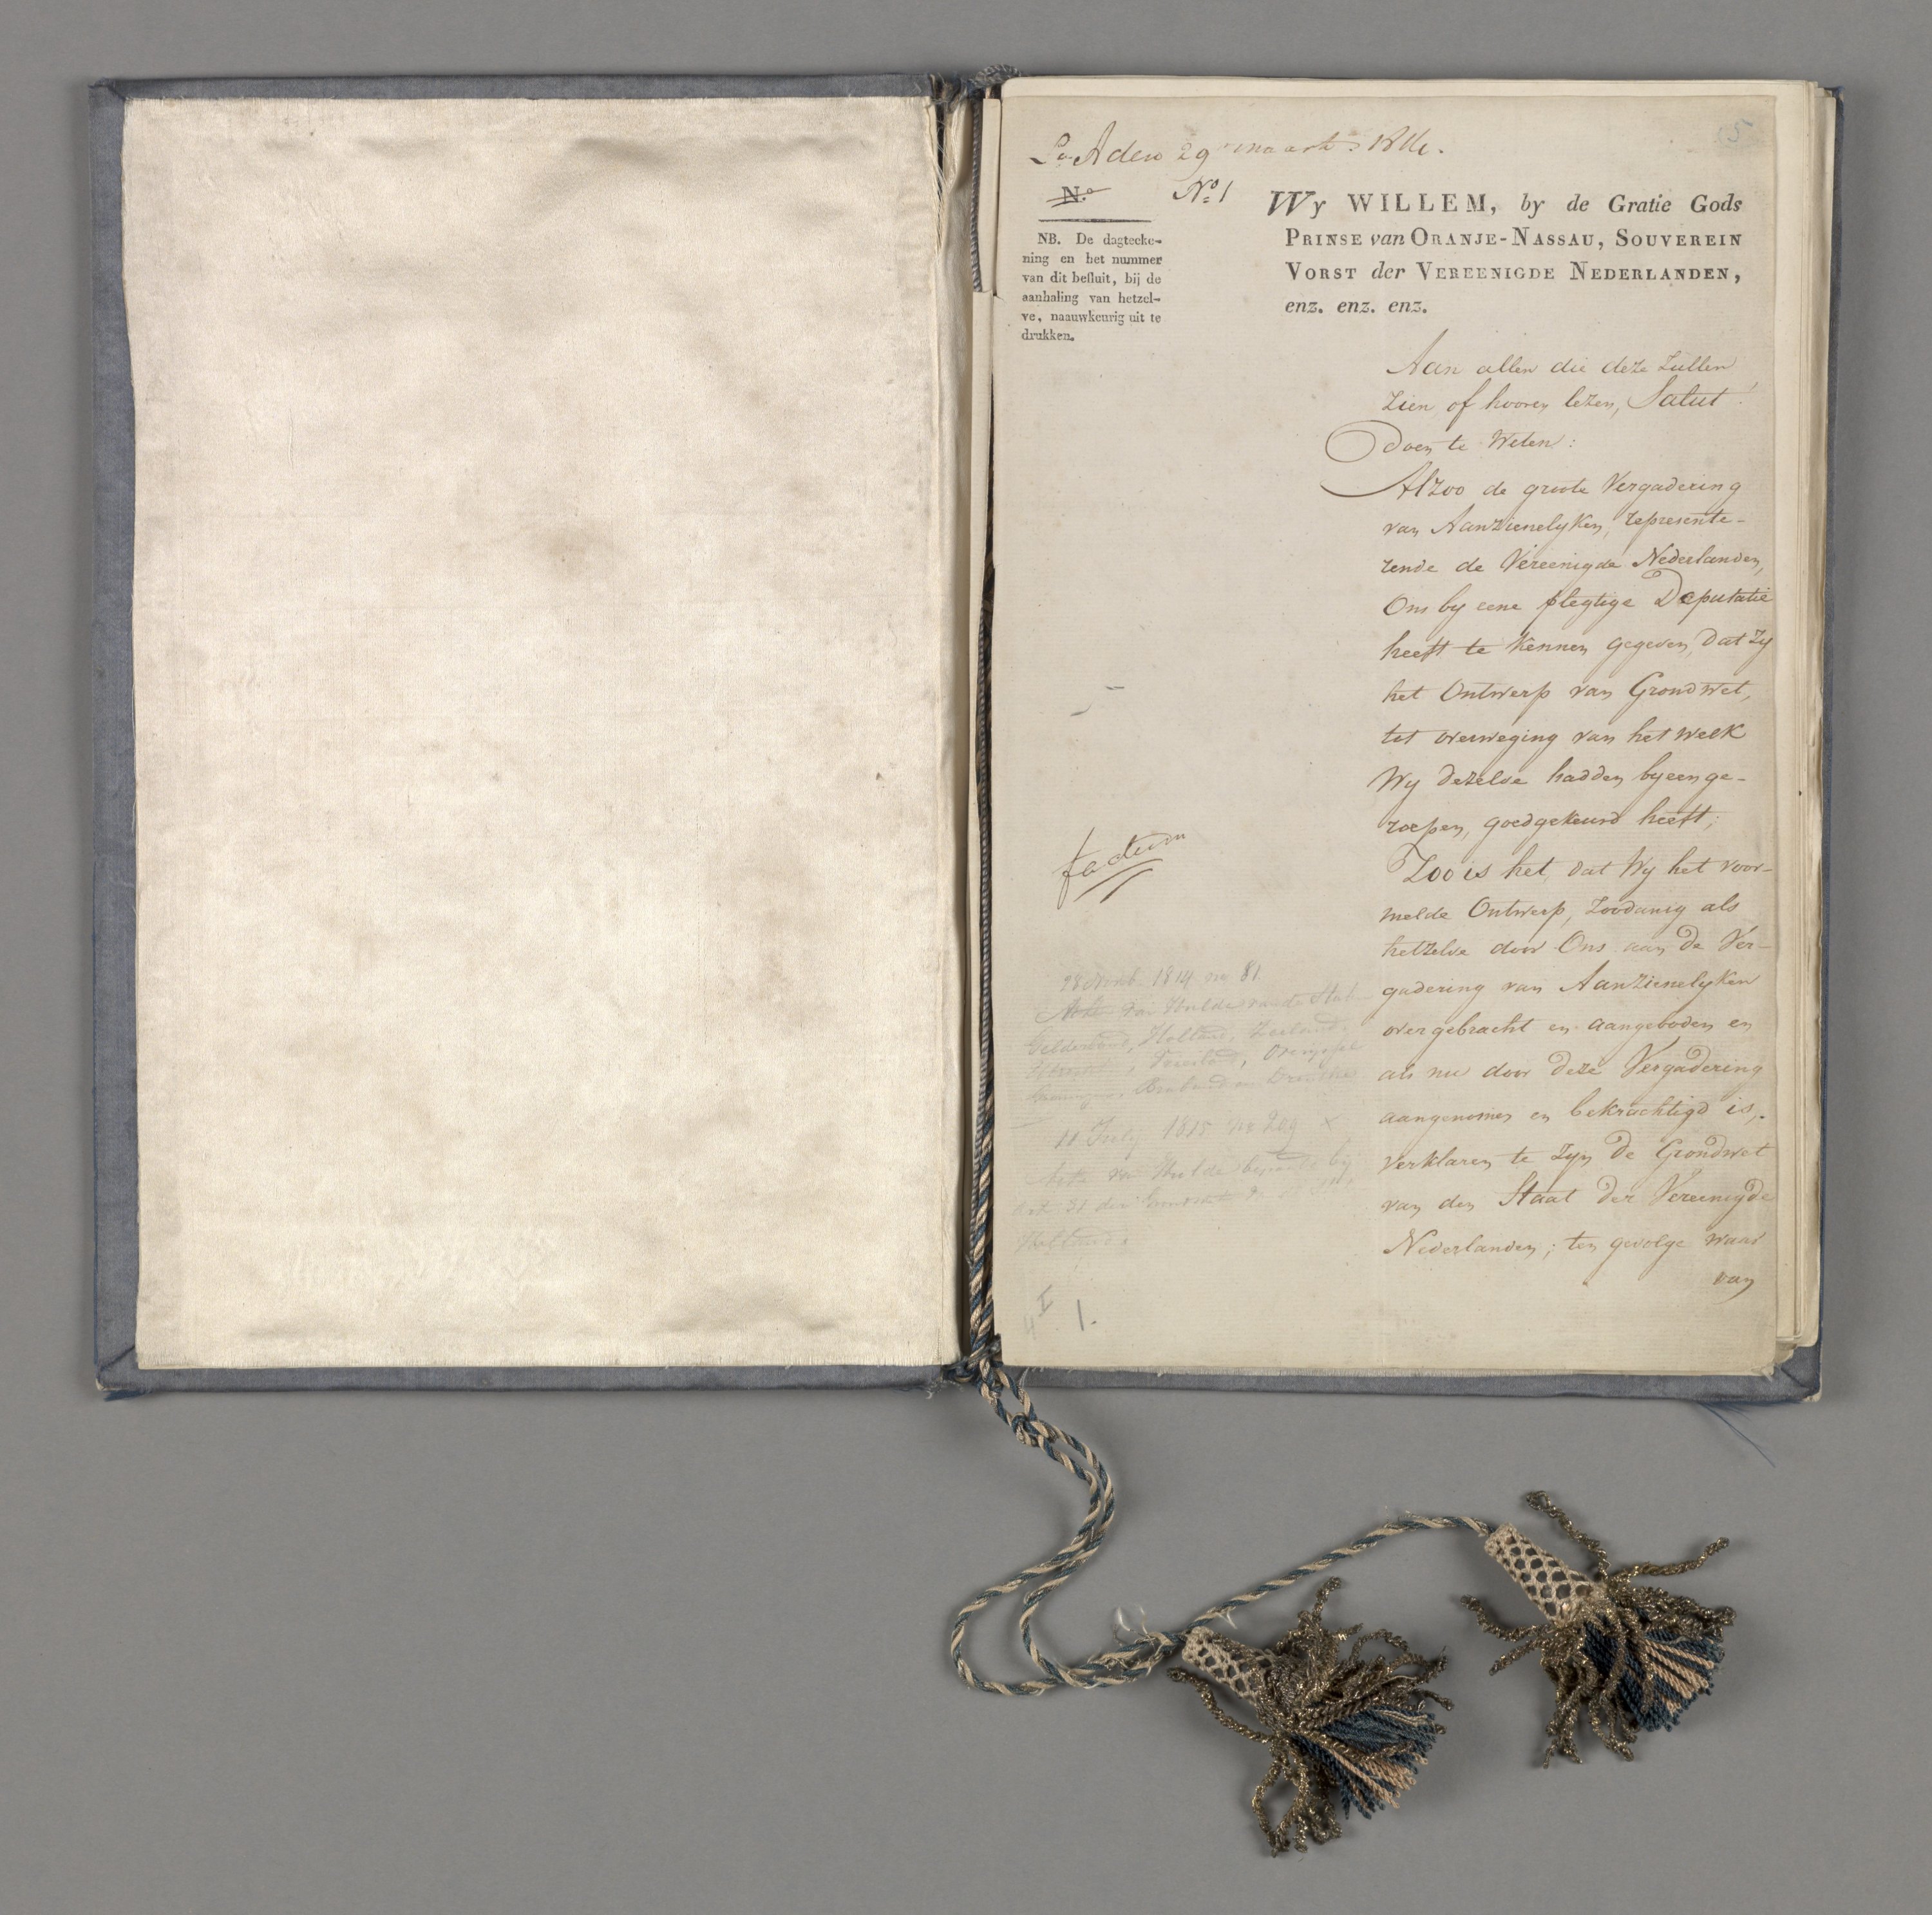 La. A den 29 maart 1814.
5
N.o
No. 1
NB. De dagteeke-
ning en het nummer
van dit besluit, bij de
aanhaling van hetzel-
ve, naauwkeurig uit te
drukken.
Wy WILLEM, by de Gratie Gods
PRINSE van ORANJE-NASSAU, SOUVEREIN
VORST der VEREENIGDE NEDERLANDEN,
enz. enz. enz.
Aan allen die deze zullen
zien of hooren lezen, Salut!
doen te Weten:
Alzoo de groote Vergadering
van Aanzienelyken, represente-
rende de Vereenigde Nederlanden,
Ons by eene plegtige Deputatie
heeft te kennen gegeven, dat zy
het Ontwerp van Grondwet,
tot overweging van het welk
Wy dezelve hadden byeenge-
roepen, goedgekeurd heeft;
Zoo is het, dat Wy het voor-
melde Ontwerp, zoodanig als
hetzelve door Ons aan de Ver-
gadering van Aanzienelyken
overgebracht en aangeboden en
als nu door deze Vergadering
aangenomen en bekrachtigd is,
verklaren te zyn de Grondwet
van den Staat der Vereenigde
Nederlanden; ten gevolge waar
van
factum
28 1814 no 81
Acte van Hulde van de
Gelderland, Holland, Zeeland,
Utrecht, Vriesland, Overijssel
Brabant en Drenthe
11 July 1815 no 209 x
Acte van Hulde bepaald by
Art 31 der Grondwet
Holland.
I
4 1.